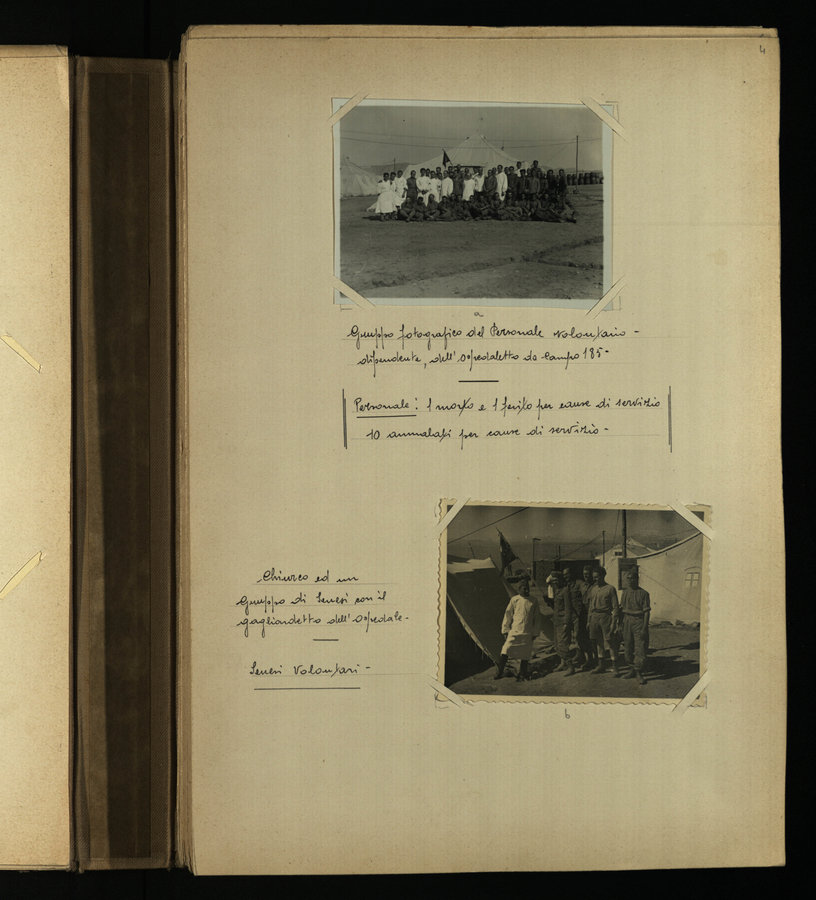 4
a
Gruppo fotografico del Personale volontario -
dipendente, dell'Ospedaletto da Campo 185 -
Personale: 1 morto e 1 ferito per cause di servizio
10 ammalati per cause di servizio -
Chiurco ed un
Gruppo di Senesi con il
gagliardetto dell'Ospedale -
Senesi Volontari -
b